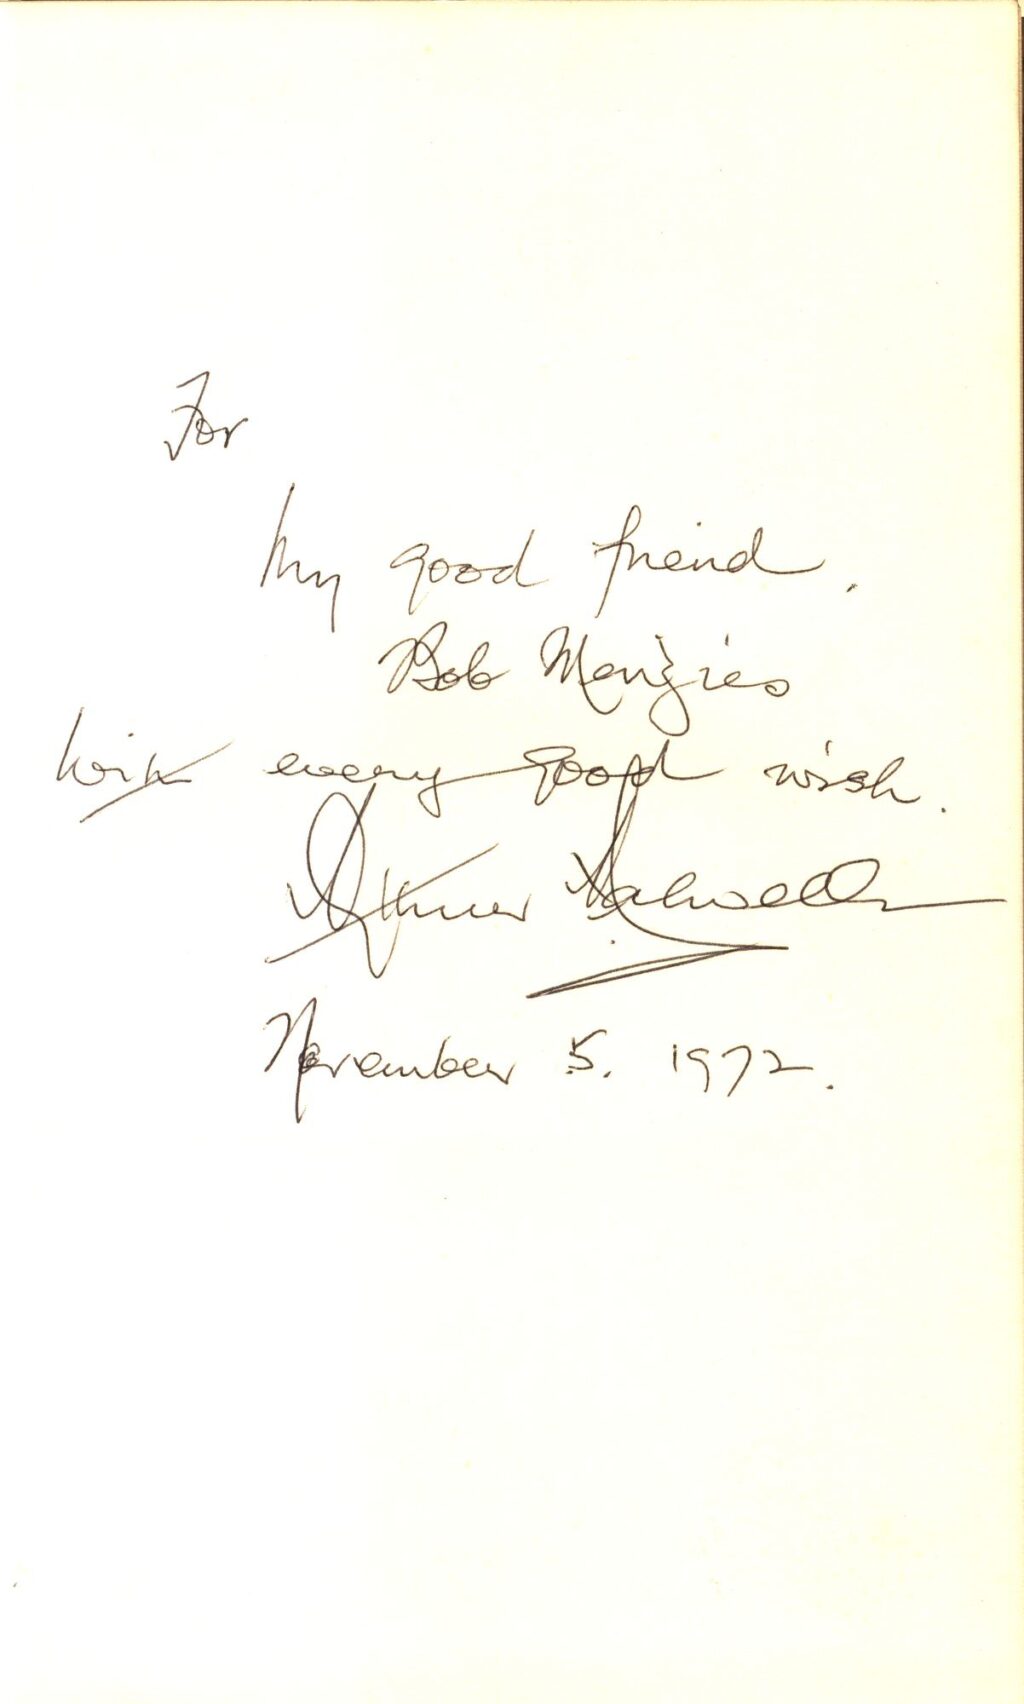 For
My good friend.
Bob Menzies
with every good wish.
Arthur Calwell
November 5. 1972.